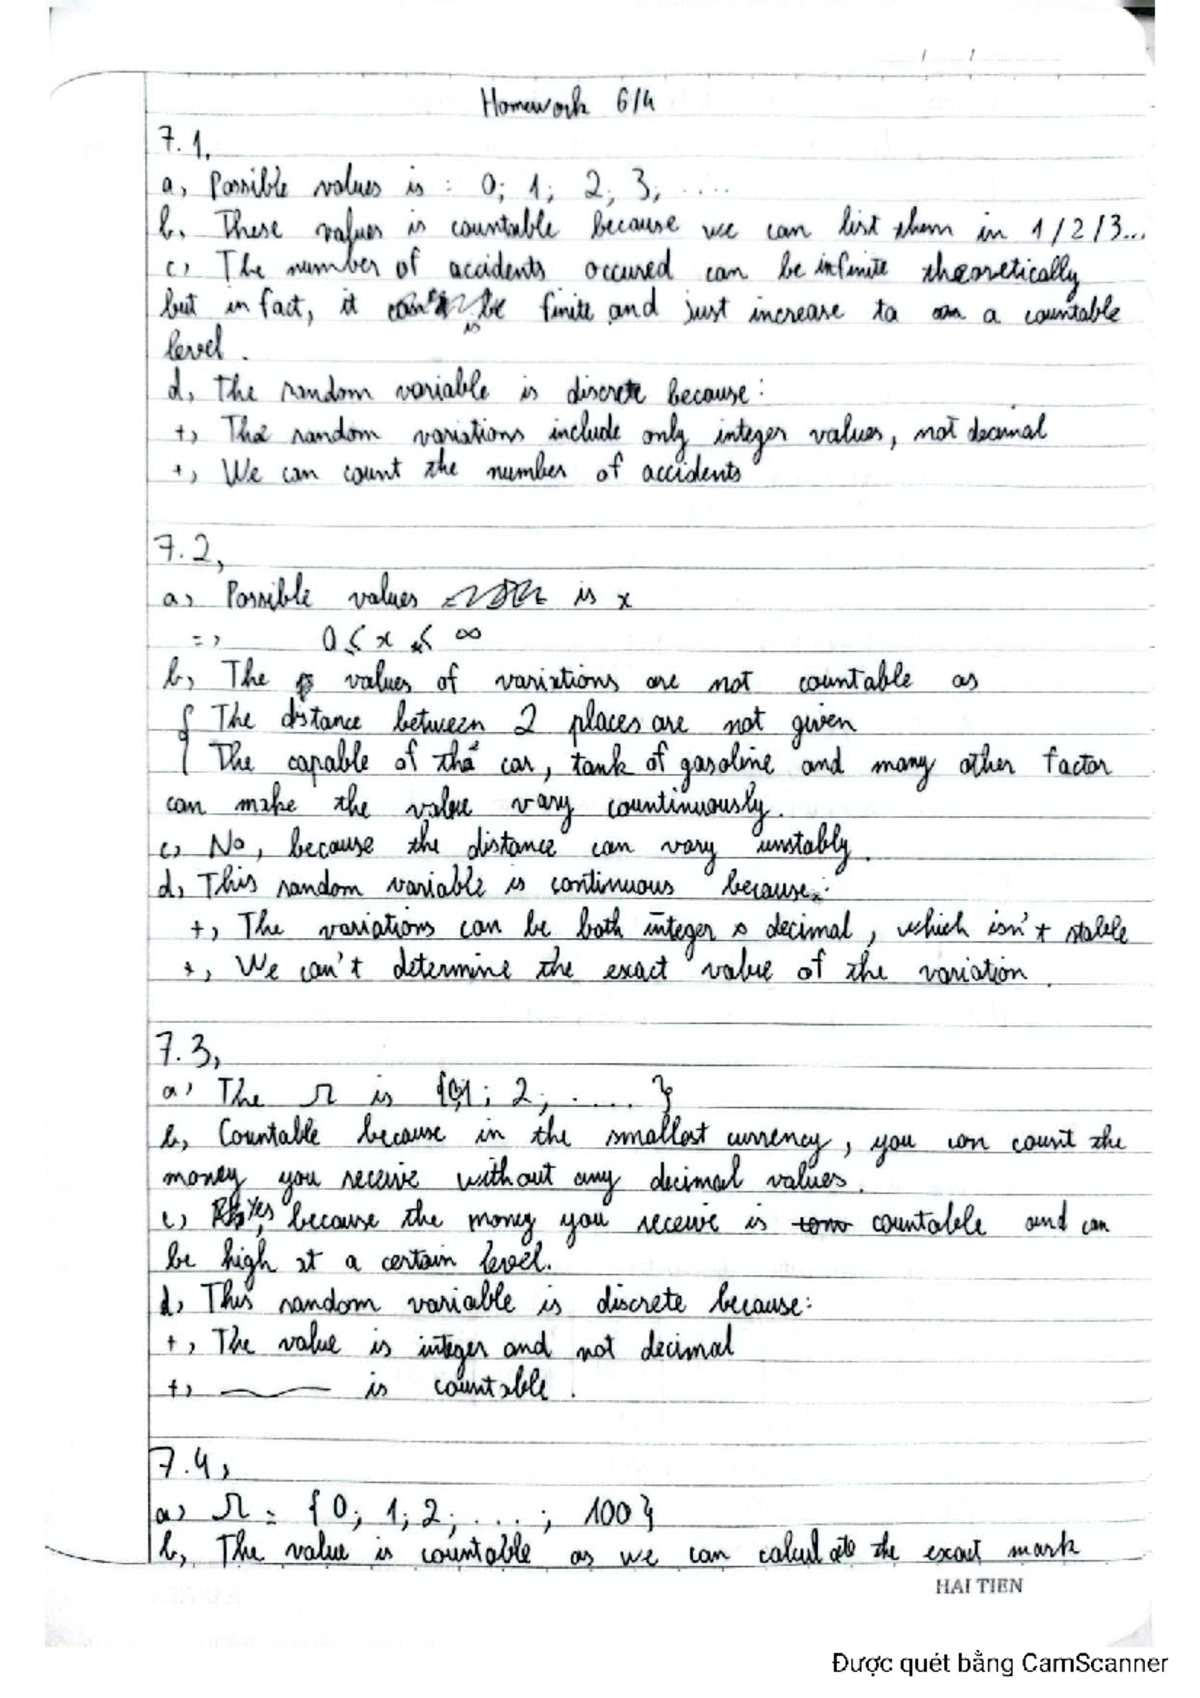 Homework 6/4
7.1,
a, Possible values is : 0; 1; 2; 3; ....
b, These values is countable because we can list them in 1/2/3...
c, The number of accidents occured can be infinite theoretically
but in fact, it is finite and just increase to a countable
level.
d, The random variable is discrete because:
+, The random variations include only integer values, not decimal
+, We can count the number of accidents
7.2,
a, Possible values is x
=> 0 ≤ x ≤ ∞
b, The values of variations are not countable as
{ The distance between 2 places are not given
The capable of the car, tank of gasoline and many other factor
can make the value vary countinuously.
c, No, because the distance can vary unstably.
d, This random variable is continuous because:
+, The variations can be both integer & decimal, which isn't stable
+, We can't determine the exact value of the variation.
7.3,
a, The Ω is {0;1; 2; .... }
b, Countable because in the smallest currency, you can count the
money you receive without any decimal values.
c, Yes, because the money you receive is countable and can
be high at a certain level.
d, This random variable is discrete because:
+, The value is integer and not decimal
+, is countable.
7.4,
a, Ω = {0; 1; 2; ...; 100}
b, The value is countable as we can calculate the exact mark
HAI TIEN
Được quét bằng CamScanner